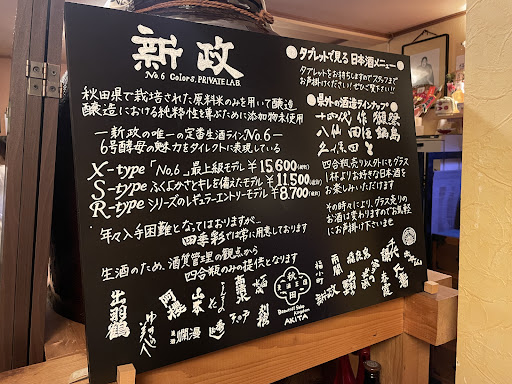 新政
No.6 Colors. PRIVATE LAB.
秋田県で栽培された原料米のみを用いて醸造
醸造における純粋性を尊ぶために添加物未使用
―新政の唯一の定番生酒ラインNo.6―
6号酵母の魅力をダイレクトに表現している
X-type「No.6」最上級モデル ¥15,600(税別)
S-type ふくよかさとキレを備えたモデル ¥11,500(税別)
R-type シリーズのレギュラーエントリーモデル ¥8,700(税別)
年々入手困難となってはおりますが…
四季彩では常に用意しております
生酒のため、酒質管理の観点から
四合瓶のみの提供となります
出羽鶴
ゆきの美人
山本
爛漫
天の戸
秋田
美酒王国
Beautiful Sake Kingdom
AKITA
福小町
雨蘭
新政
●タブレットで見る 日本酒メニュー●
タブレットをお持ちしますのでスタッフまで
お声掛けください!ぜひご覧下さい!!
●県外の酒造ラインナップ●
十四代 作 獺祭
八仙 田酒 鍋島
四合瓶売り以外にもグラス
1杯よりお好きな日本酒を
お楽しみいただけます
その時々により、グラス売りの
お酒は変わりますのでお気軽
にお声掛け下さいませ